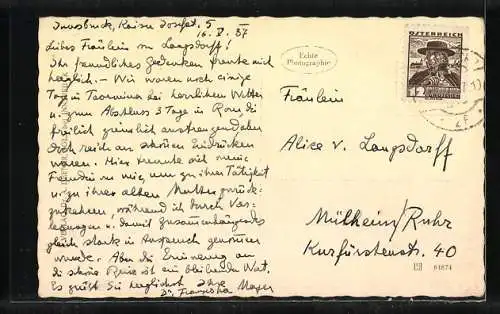 Innsbruck, Kaiser Josefst. 5
16. V. 37
Liebes Fräulein v. Langsdorff!
Ihr freundliches Gedenken freute mich
herzlich. – Wir waren noch einige
Tage in Taormina bei herrlichem Wetter
u. zum Abschluss 3 Tage in Rom, die
freilich ziemlich anstrengend aber
doch reich an schönen Eindrücken
waren. Hier trennte sich meine
Freundin von mir, um zu ihrer Tätigkeit
u. zu ihrer alten Mutter zurück-
zukehren, während ich durch Vor-
lesungen u. damit Zusammenhängendes
gleich stark in Anspruch genommen
wurde. Aber die Erinnerung an
die schöne Reise ist ein bleibender Wert.
Es grüßt Sie herzlichst Ihre
Dr. Franziska Mayer
Echte
Photographie
ÖSTERREICH
12
Fräulein
Alice v. Langsdorff
Mülheim/Ruhr
Kurfürstenstr. 40
61674